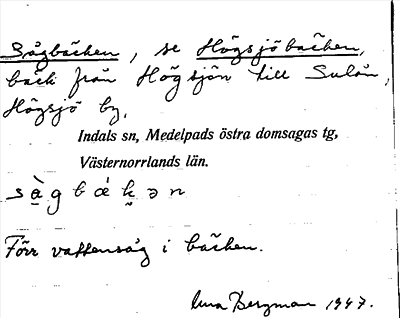 Sågbäcken, se Högsjöbäcken,
bäck från Högsjön till Sulån,
Högsjö by.
Indals sn, Medelpads östra domsagas tg,
Västernorrlands län.
Förr vattensåg i bäcken.
Bergman 1947.